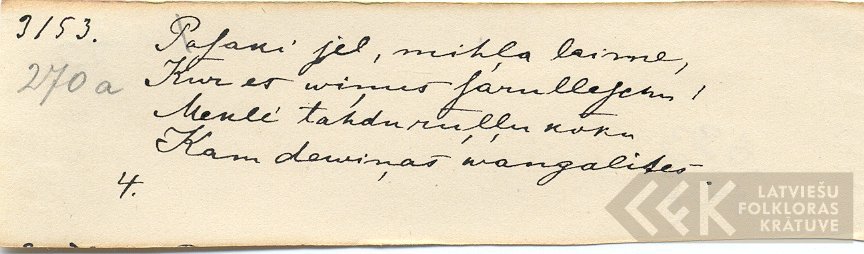 3153.
Paſaki jel, mihļa laime,
270a
Kur es wiņus ſarulleſchu!
Meklē tahdu ruļļu koku
Kam dewiņas wangalites.
4.
LATVIEŠU
FOLKLORAS
KRĀTUVE